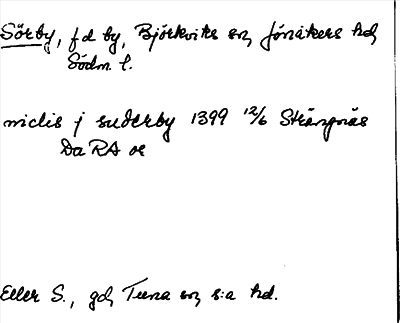 Sörby, f d by, Björkviks sn, Jönåkers hd,
Södm. l.
niclis j suderby 1399 12/6 Strängnäs
Da RA or
Eller S., gd, Tuna sn, s:a hd.